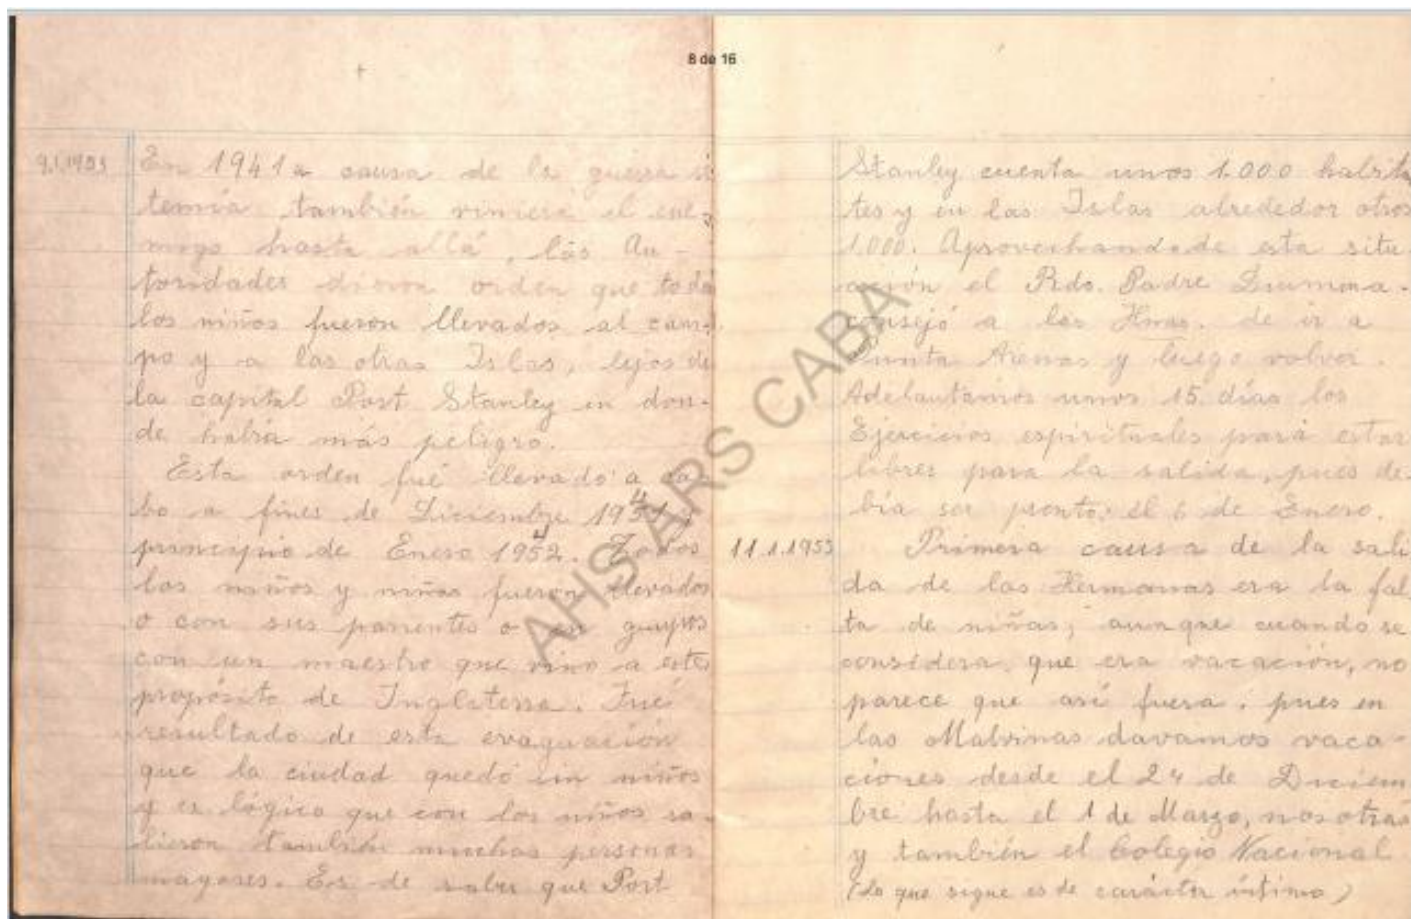 8 de 16
9.1.1953
En 1941 a causa de la guerra se
temía también viniera el ene-
migo hasta allá, las Au-
toridades dieron orden que todos
los niños fueron llevados al cam-
po y a las otras Islas, lejos de
la capital Port Stanley en don-
de había más peligro.
Esta orden fué llevado a ca-
bo a fines de Diciembre 1941,
principio de Enero 1942. Todos
los niños y niñas fueron llevados
o con sus parientes o en grupos
con un maestro que vino a este
propósito de Inglaterra. Fué
resultado de esta evaquación
que la ciudad quedó sin niños
y es lógico que con los niños sa-
lieron también muchas personas
mayores. Es de saber que Port
Stanley cuenta unos 1.000 habitan
tes y en las Islas alrededor otros
1.000. Aprovechando de esta situ-
ación el Rdo. Padre
consejó a las Hnas. de ir a
Punta Arenas y luego volver.
Adelantamos unos 15 días los
Ejercicios espirituales para estar
libres para la salida, pues de-
bía ser pronto: el 6 de Enero.
11.1.1953
Primera causa de la sali
da de las Hermanas era la fal
ta de niñas; aunque cuando se
considera, que era vacación, no
parece que así fuera; pues en
las Malvinas davamos vaca-
ciones desde el 24 de Diciem
bre hasta el 1 de Marzo, nosotras
y también el Colegio Nacional
(lo que sigue es de carácter íntimo)
AHS ARS CABA